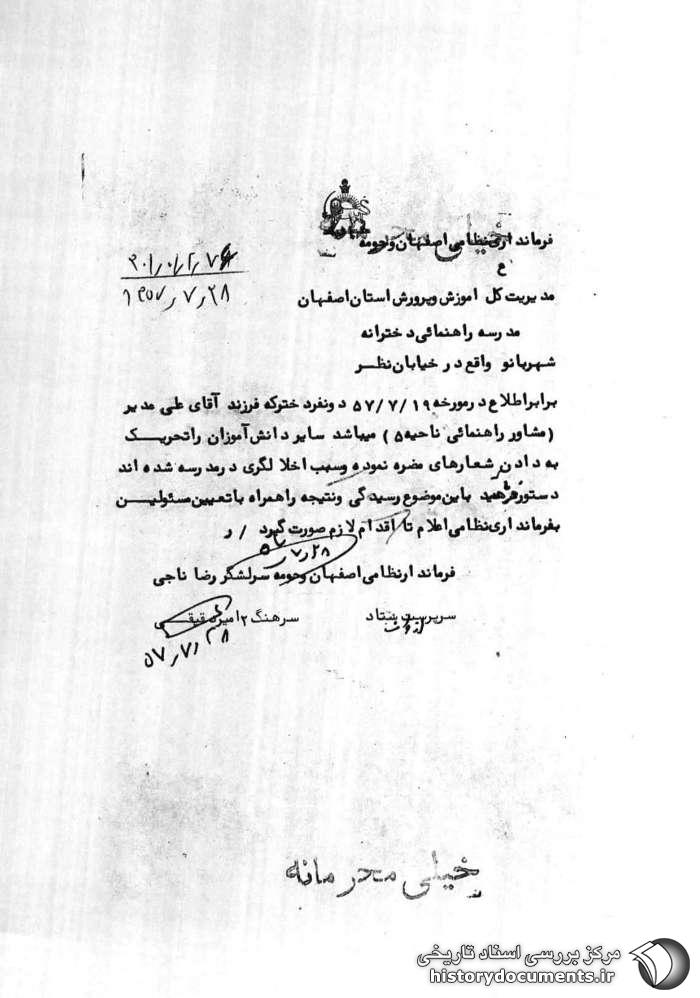 خیلی محرمانه
فرمانداری نظامی اصفهان و حومه
ع
۱۳۵۷٫۷٫۲۸
مدیریت کل اموزش وپرورش استان اصفهان
مدرسه راهنمائی دخترانه
شهربانو واقع در خیابان نظر
برابر اطلاع در مورخه ۵۷/۷/۱۹ دونفر دختر که فرزند آقای علی مدیر
(مشاور راهنمائی ناحیه ۵) میباشد سایر دانش آموزان را تحریک
به دادن شعارهای مضره نموده وسبب اخلالگری در مدرسه شده اند
دستور فرمائید باین موضوع رسیدگی ونتیجه را همراه با تعیین مسئولین
بفرمانداری نظامی اعلام تا اقدام لازم صورت گیرد / ر
۵۷٫۷٫۲۸
فرماندار نظامی اصفهان وحومه سرلشگر رضا ناجی
سرپرست ستاد
سرهنگ ۲
۵۷٫۷٫۲۸
خیلی محرمانه
مرکز بررسی اسناد تاریخی
historydocuments.ir